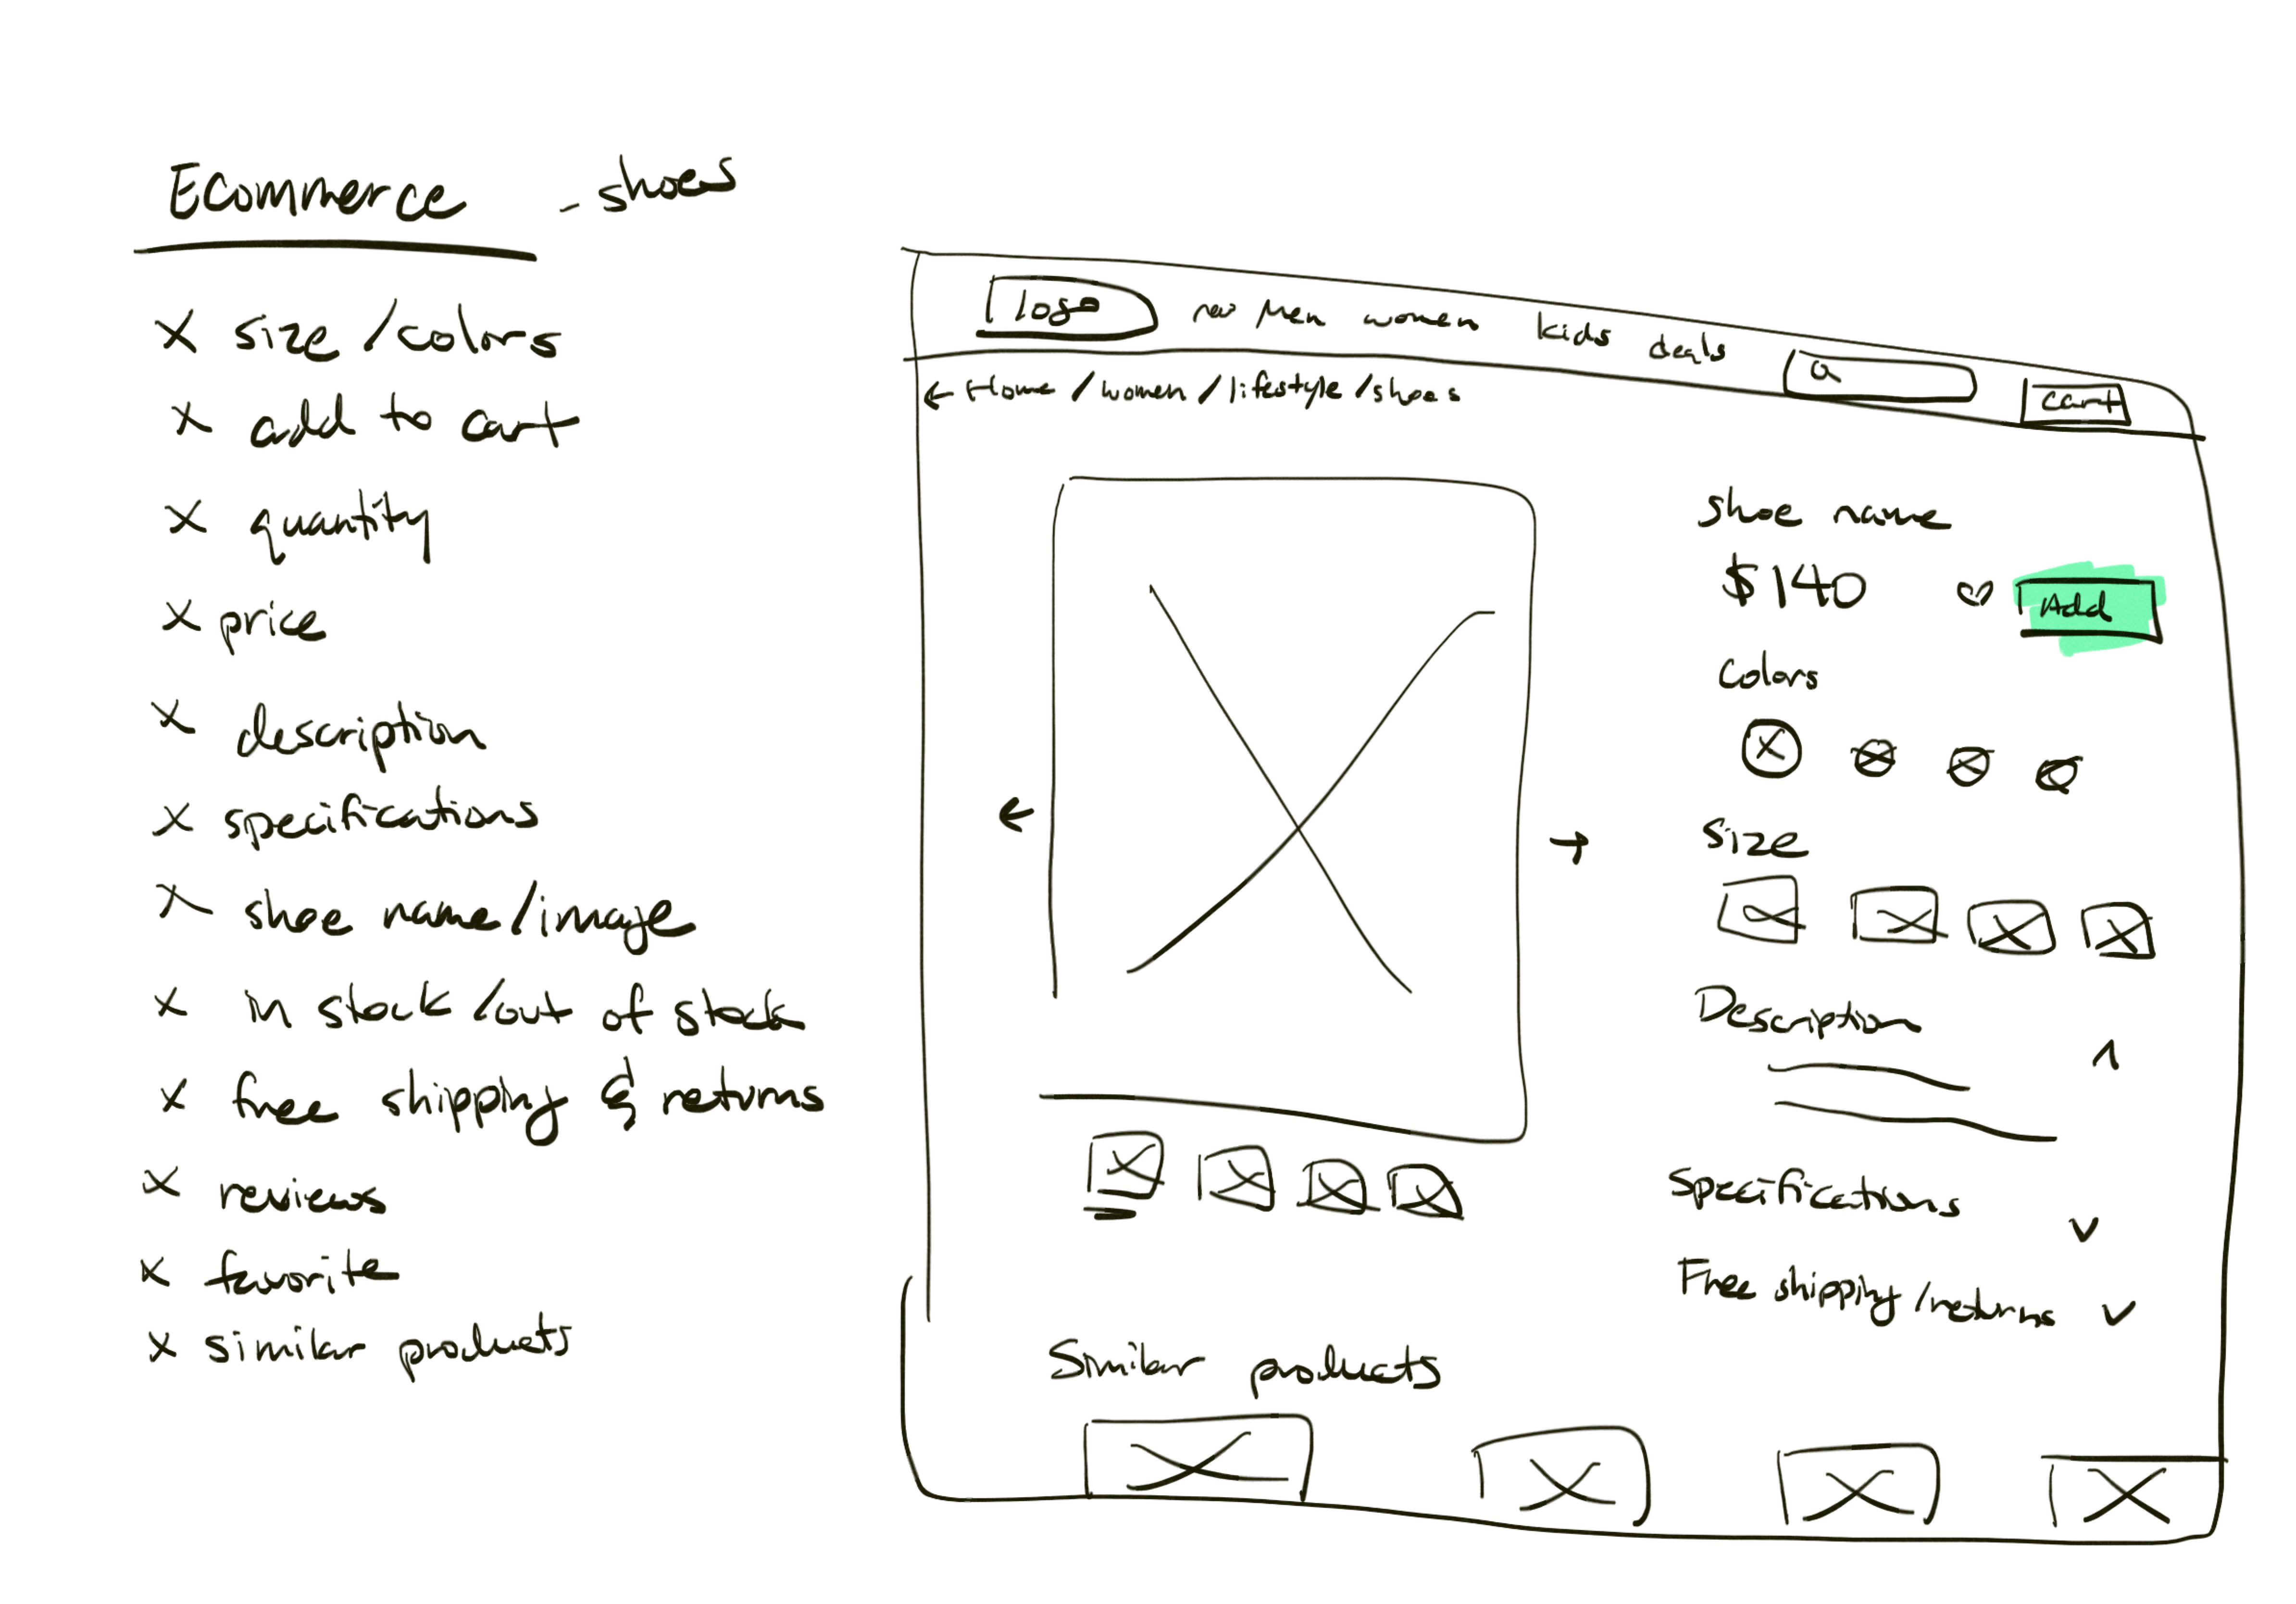 Ecommerce - shoes
x size/colors
x add to cart
x quantity
x price
x description
x specifications
x shoe name/image
x in stock/out of stock
x free shipping & returns
x reviews
x favorite
x similar products
logo new Men women kids deals cart
← Home / women / lifestyle / shoes
shoe name
$140 Add
Colors
Size
Description
Specifications
Free shipping/returns
Similar products